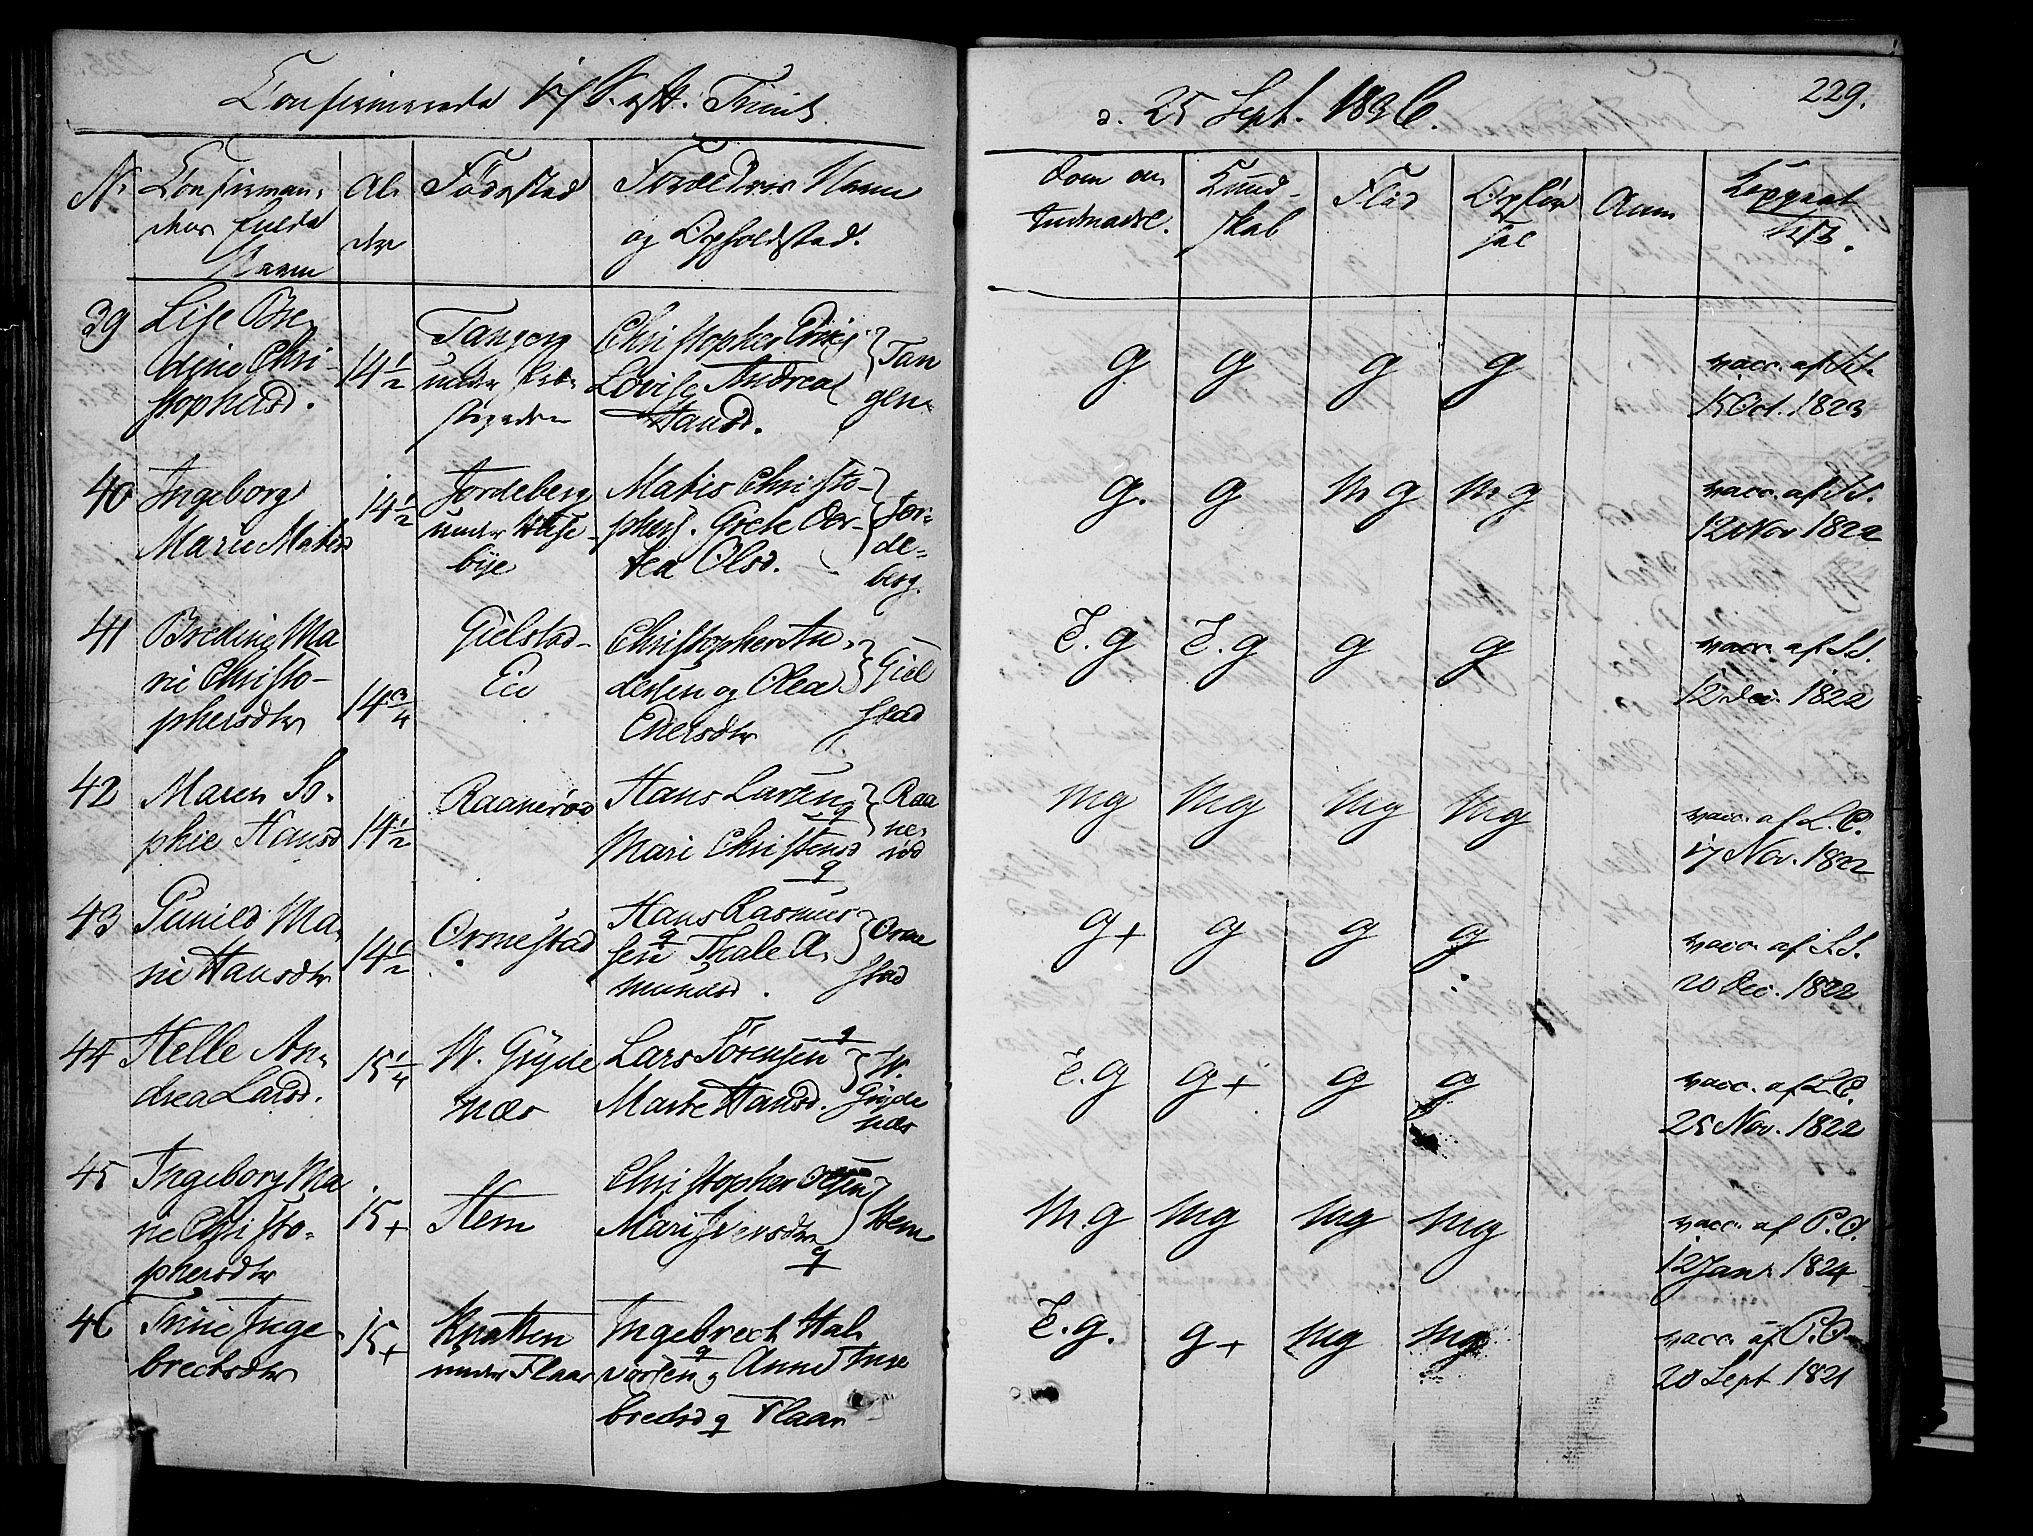 Confirmerede
Trinit.
d. 25 Sept. 1836.
229.
No
Confirman-
dens fulde
Navn
Al-
der
Fødested
Forældres Navn
og Opholdsted.
Dom om
Indmadse.
Kund-
skab
Flid
Opfør
sel
Anm
39
Lise
dine Chri-
stophersd.
14 1/2
Tangen
under
Christopher
Lovise Andrea
Hansd.
Tan
gen
g
g
g
g
vacc. af
15 Oct. 1823
40
Ingeborg
Marie Matisd
14 1/2
Jordeberg
under Huse-
bye
Matis Christo-
phers. Grete Dor-
tea Olsd.
Jor-
de-
berg.
g.
g
mg
mg
vacc. af S.S.
12 Nov 1822
41
Breding Ma
rie Christo-
phersdtr
14 3/4
Gielstad-
Eie
Christopher An-
dersen og Olea
Enersdtr
Giel
stad
T.g
T.g
g
g
vacc. af S.S.
12 Dec. 1822
42
Maren So-
phie Hansd
14 1/2
Raanerød
Hans Larsen
Mari Christensd
Raa
ne-
rød
mg
mg
mg
mg
vacc. af L.C.
17 Nov. 1822
43
Gunild Ma-
rie Hansdtr
14 1/2
Ormestad
Hans Rasmus-
sen Thale A-
mundsd.
Orme
stad
g+
g
g
g
vacc. af S.S.
20 Dec. 1822
44
Helle An-
drea Larsd.
15 1/4
W. Gryde
nær
Lars Sørensen
Marte Hansd.
W.
Gryde
nær
T.g
g+
g
g
vacc. af L.C.
25 Nov. 1822
45
Ingeborg Ma
rie Christo-
phersdtr
15+
Hem
Christopher Olsen
Mari Iversdtr
Hem
mg
mg
mg
mg
vacc. af P.O.
12 Janr 1824
46
Trine Inge
brectsdtr
15+
Knatten
under Flaar
Ingebrect Hal-
vorsen og Anne Inge
brectsd Flaar
T.g.
g+
mg
mg
vacc. af P.O.
20 Sept 1821